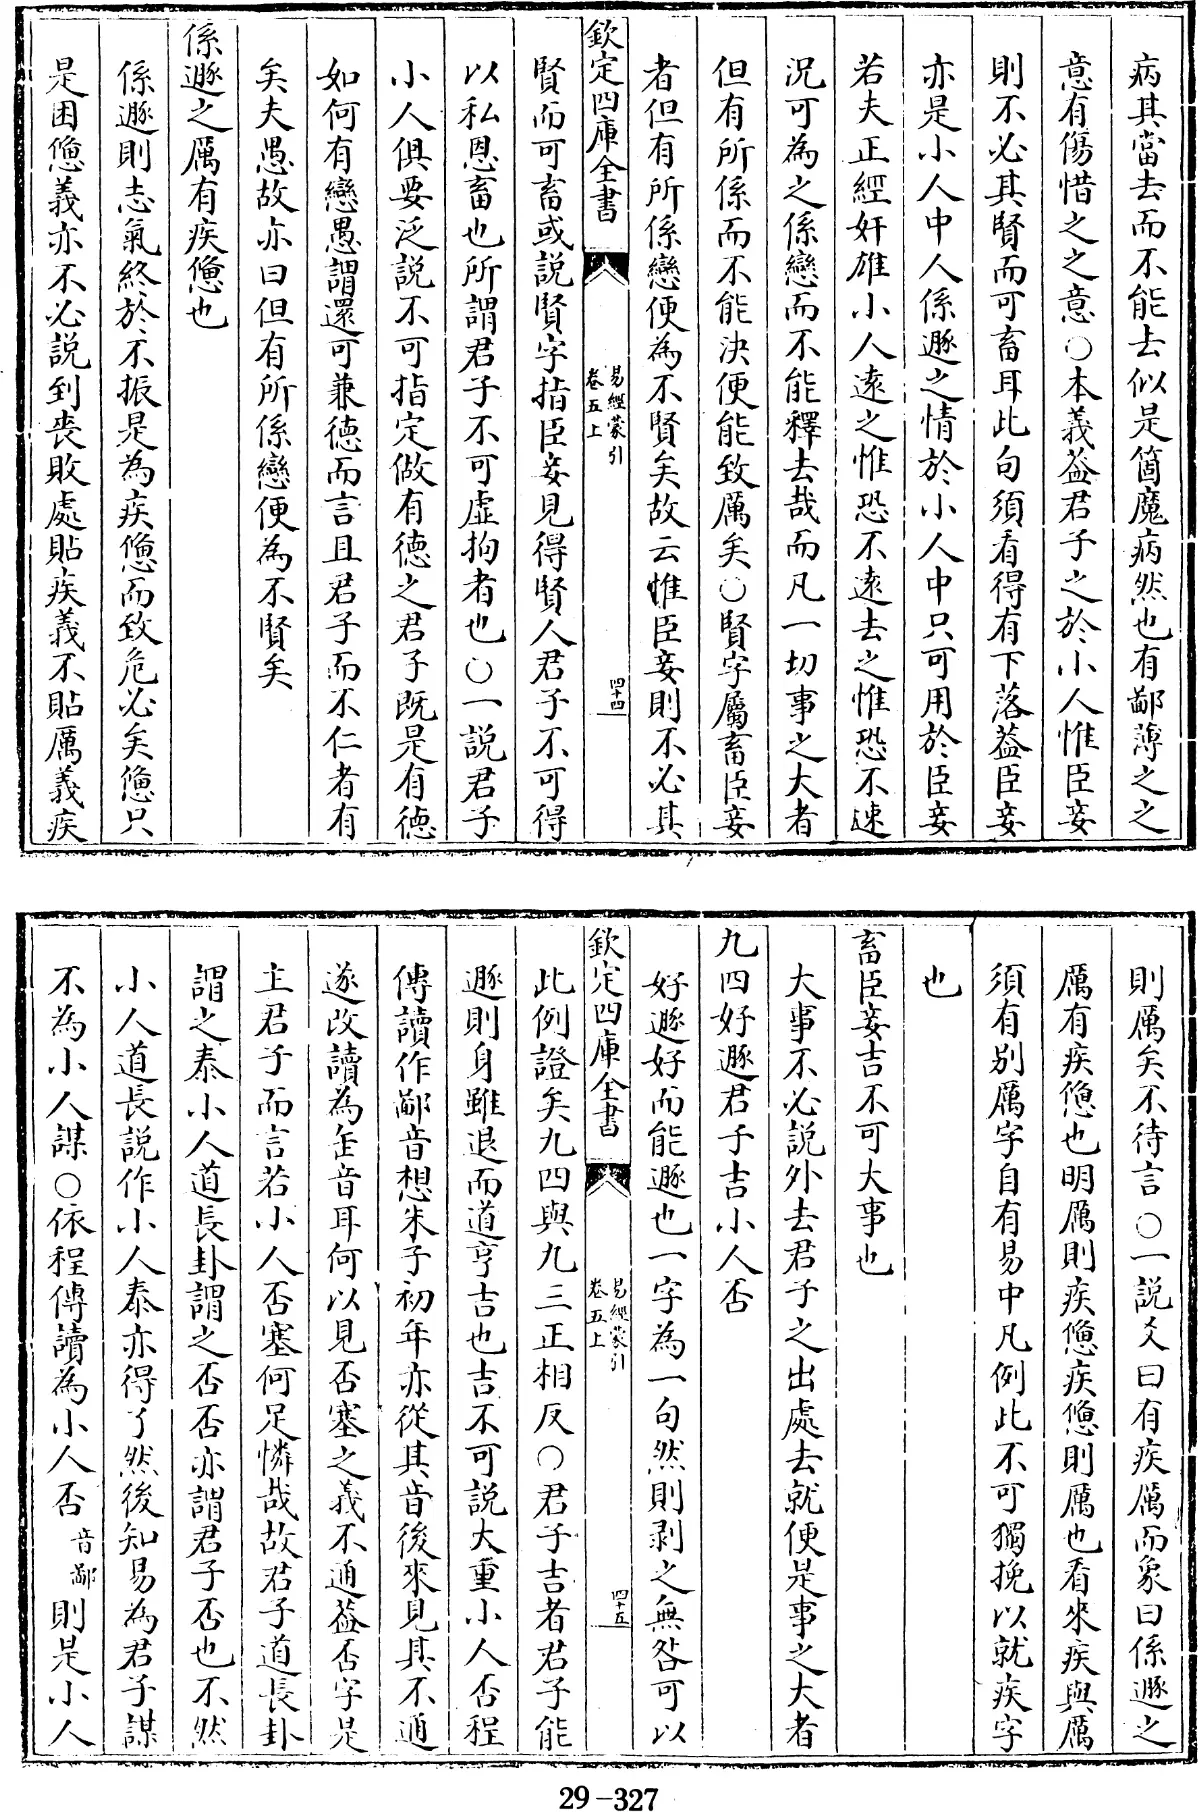 病其當去而不能去似是箇魔病然也有鄙薄之之
意有傷惜之之意○本義葢君子之於小人惟臣妾
則不必其賢而可畜耳此句須看得有下落葢臣妾
亦是小人中人係遯之情於小人中只可用於臣妾
若夫正經奸雄小人遠之惟恐不遠去之惟恐不速
況可為之係戀而不能釋去哉而凡一切事之大者
但有所係而不能決便能致厲矣○賢字屬畜臣妾
者但有所係戀便為不賢矣故云惟臣妾則不必其
欽定四庫全書
易經蒙引
卷五上
四十四
賢而可畜或説賢字指臣妾見得賢人君子不可得
以私恩畜也所謂君子不可虛拘者也○一説君子
小人俱要泛説不可指定做有德之君子既是有德
如何有戀愚謂還可兼德而言且君子而不仁者有
矣夫愚故亦曰但有所係戀便為不賢矣
係遯之厲有疾憊也
係遯則志氣終於不振是為疾憊而致危必矣憊只
是困憊義亦不必説到喪敗處貼疾義不貼厲義疾
則厲矣不待言○一説爻曰有疾厲而象曰係遯之
厲有疾憊也明厲則疾憊疾憊則厲也看來疾與厲
須有別厲字自有易中凡例此不可獨挽以就疾字
也
畜臣妾吉不可大事也
大事不必説外去君子之出處去就便是事之大者
九四好遯君子吉小人否
好遯好而能遯也一字為一句然則剥之無咎可以
欽定四庫全書
易經蒙引
卷五上
四十五
此例證矣九四與九三正相反○君子吉者君子能
遯則身雖退而道亨吉也吉不可説大重小人否程
傳讀作鄙音想朱子初年亦從其音後來見其不通
遂改讀為缶音耳何以見否塞之義不通葢否字是
主君子而言若小人否塞何足憐哉故君子道長卦
謂之泰小人道長卦謂之否否亦謂君子否也不然
小人道長説作小人泰亦得了然後知易為君子謀
不為小人謀○依程傳讀為小人否音鄙則是小人
29-327